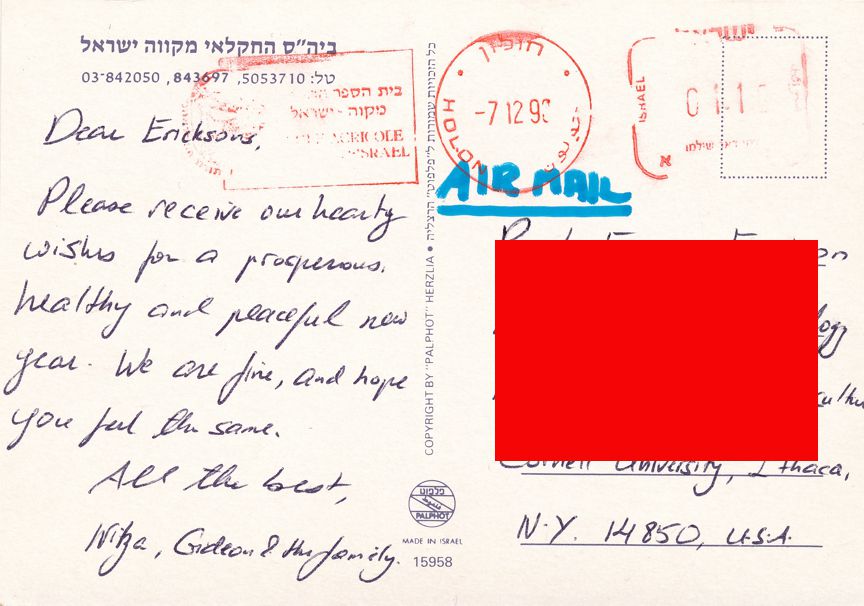 ביה״ס החקלאי מקווה ישראל
טל: 5053710, 843697, 03-842050
בית הספר
מקוה - ישראל
AGRICOLE
ISRAEL
Dear Ericksons,
Please receive our hearty
wishes for a prosperous,
healthy and peaceful new
year. We are fine, and hope
you feel the same.
All the best,
Nitza, Gideon & the family.
כל הזכויות שמורות ל״פלפוט״ הרצליה • COPYRIGHT BY "PALPHOT" HERZLIA
פלפוט
PALPHOT
MADE IN ISRAEL
15958
חולון
-7 12 9
HOLON
ISRAEL
א
AIR MAIL
Cornell University, Ithaca,
N.Y. 14850, U.S.A.